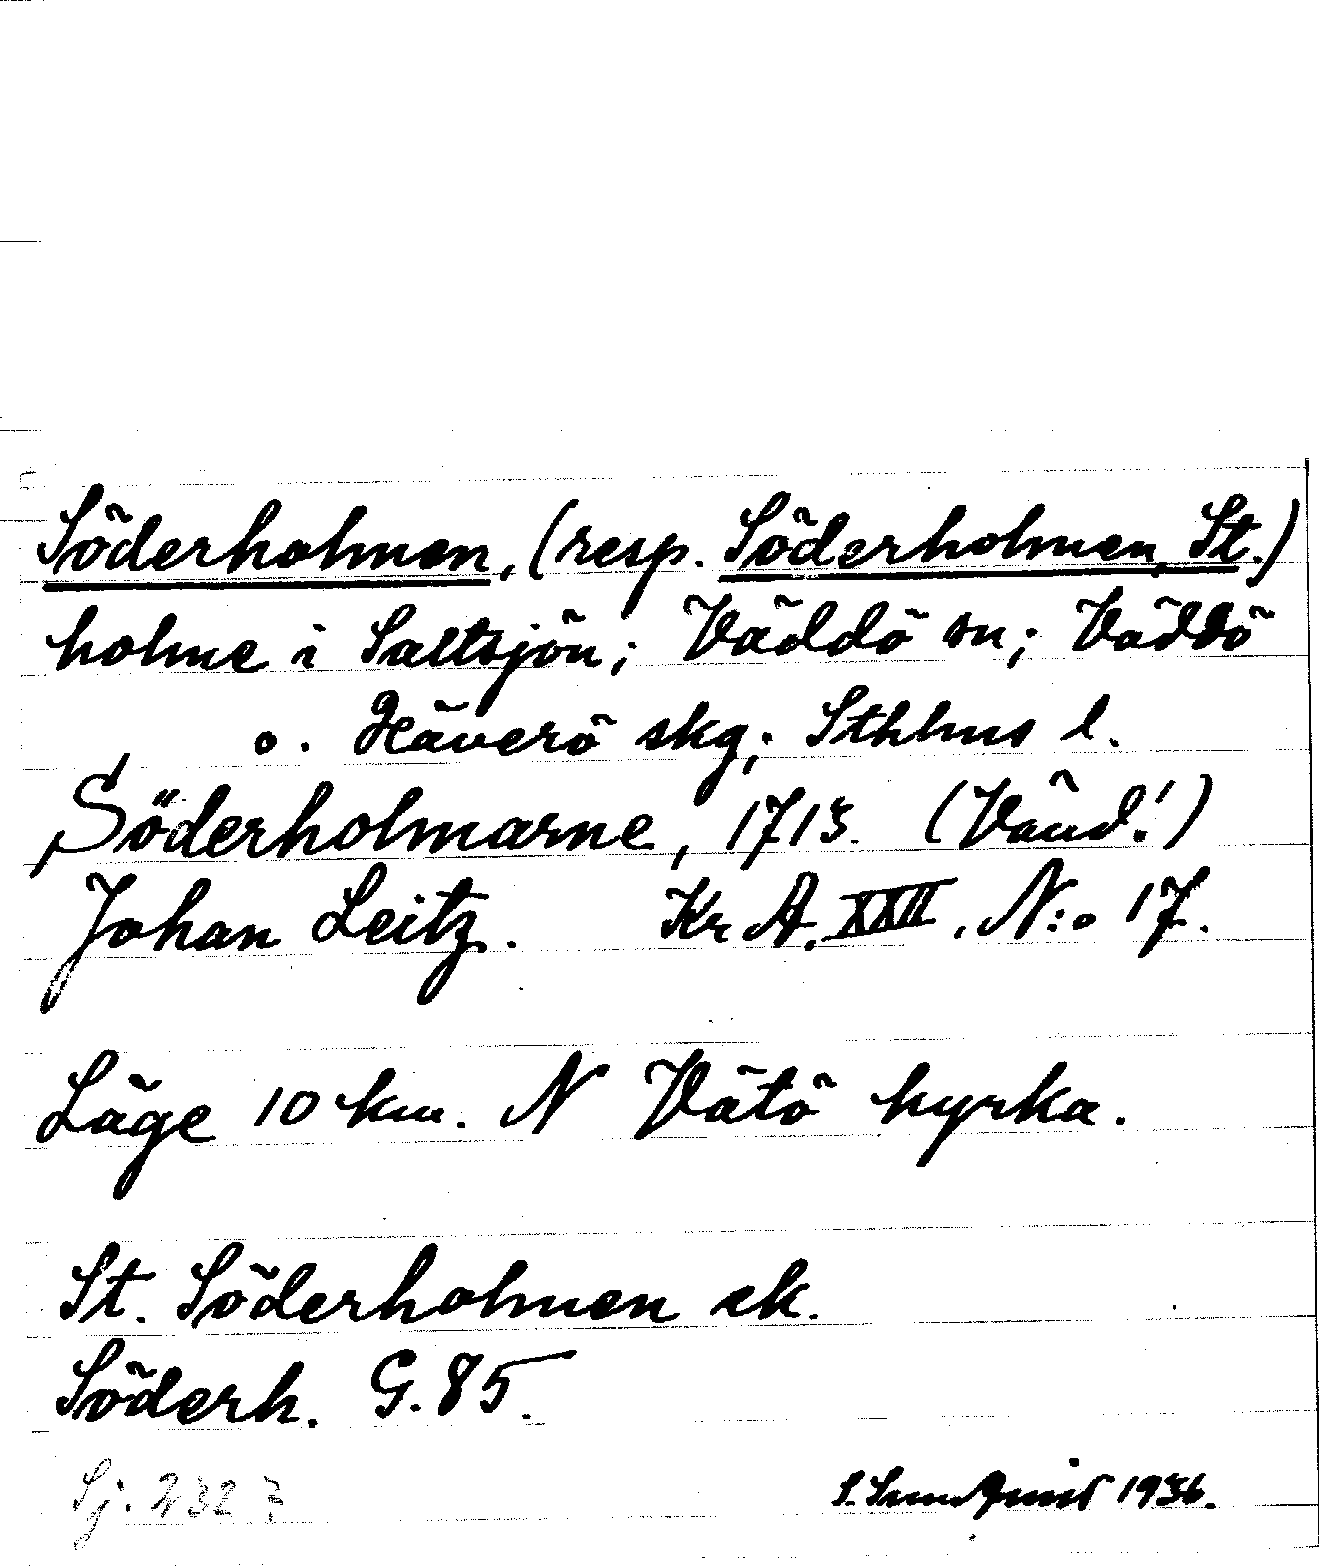 Söderholmen, (resp. Söderholmen, St.)
holme i Saltsjön; Väddö sn; Väddö
o. Häverö skg; Sthlms l.
Söderholmarne, 1715. (Vänd!)
Johan Leitz. Kr A. XXII, N:o 17.
Läge 10 km. N Vätö kyrka.
St. Söderholmen ek.
Söderh. G. 85.
Sj. 232
S. Sundquist 1936.